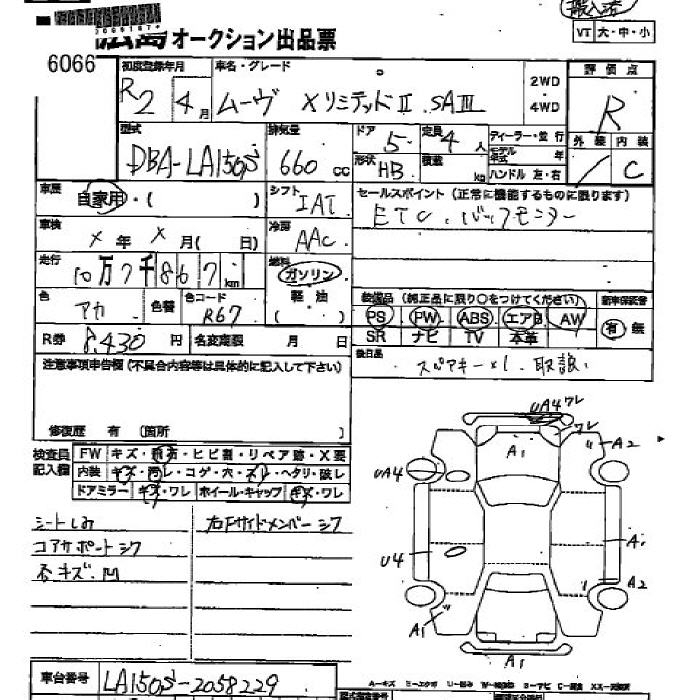 搬入済
広島オークション出品票
VT 大・中・小
6066
初度登録年月 車名・グレード
R2 4月 ムーヴ XリミテッドⅡ SAⅢ
2WD
4WD
評価点
R
型式 排気量 ドア 定員 ディーラー・並行
DBA-LA150S 660cc 5 4人
モデル年式 年
形状 積載 ハンドル 左・右
HB kg
外装 内装
C
車歴 自家用・( シフト
IAT
セールスポイント (正常に機能するものに限ります)
ETC. バックモニター
車検 X年X月( 日) 冷房
AAC
走行 10万7千867km 燃料
ガソリン
軽油
( )
色 アカ 色替 色コード R67
装備品 (純正品に限り○をつけてください) 新車保証書
PS PW ABS エアB AW 有 無
SR ナビ TV 本革
R券 8,430円 名変期限 月 日
後日品
スペアキーx1. 取説.
注意事項申告欄 (不具合内容等は具体的に記入して下さい)
修復歴 有 (箇所 )
検査員記入欄
FW キズ・飛石・ヒビ割・リペア跡・X要
内装 キズ・汚レ・コゲ・穴・スレ・ヘタリ・破レ
ドアミラー キズ・ワレ ホイール・キャップ キズ・ワレ
シートしみ 右Fサイドメンバーシワ
コアサポートシワ
各キズ. 凹
UA4 ワレ
ワレ
A1
A2
UA4
U4
A1
A2
A1
A1
A…キズ E…エクボ U…凹み W…補修跡 S…サビ C…腐食 XX…交換済
車台番号 LA150S-2058229